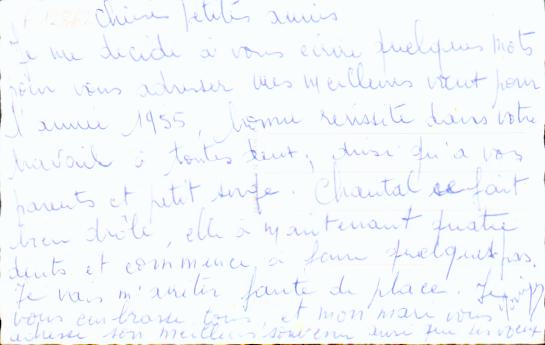 Chères petites amies
Je me décide à vous écrire quelques mots
pour vous adresser mes meilleurs vœux pour
l'année 1955, bonne réussite dans votre
travail à toutes deux, ainsi qu'à vos
parents et petit serge. Chantal se fait
bien drôle, elle à maintenant quatre
dents et commence à faire quelques pas.
Je vais m'arrêter faute de place. Je
vous embrasse tous, et mon mari vous
adresse son meilleur souvenir ainsi que ses vœux